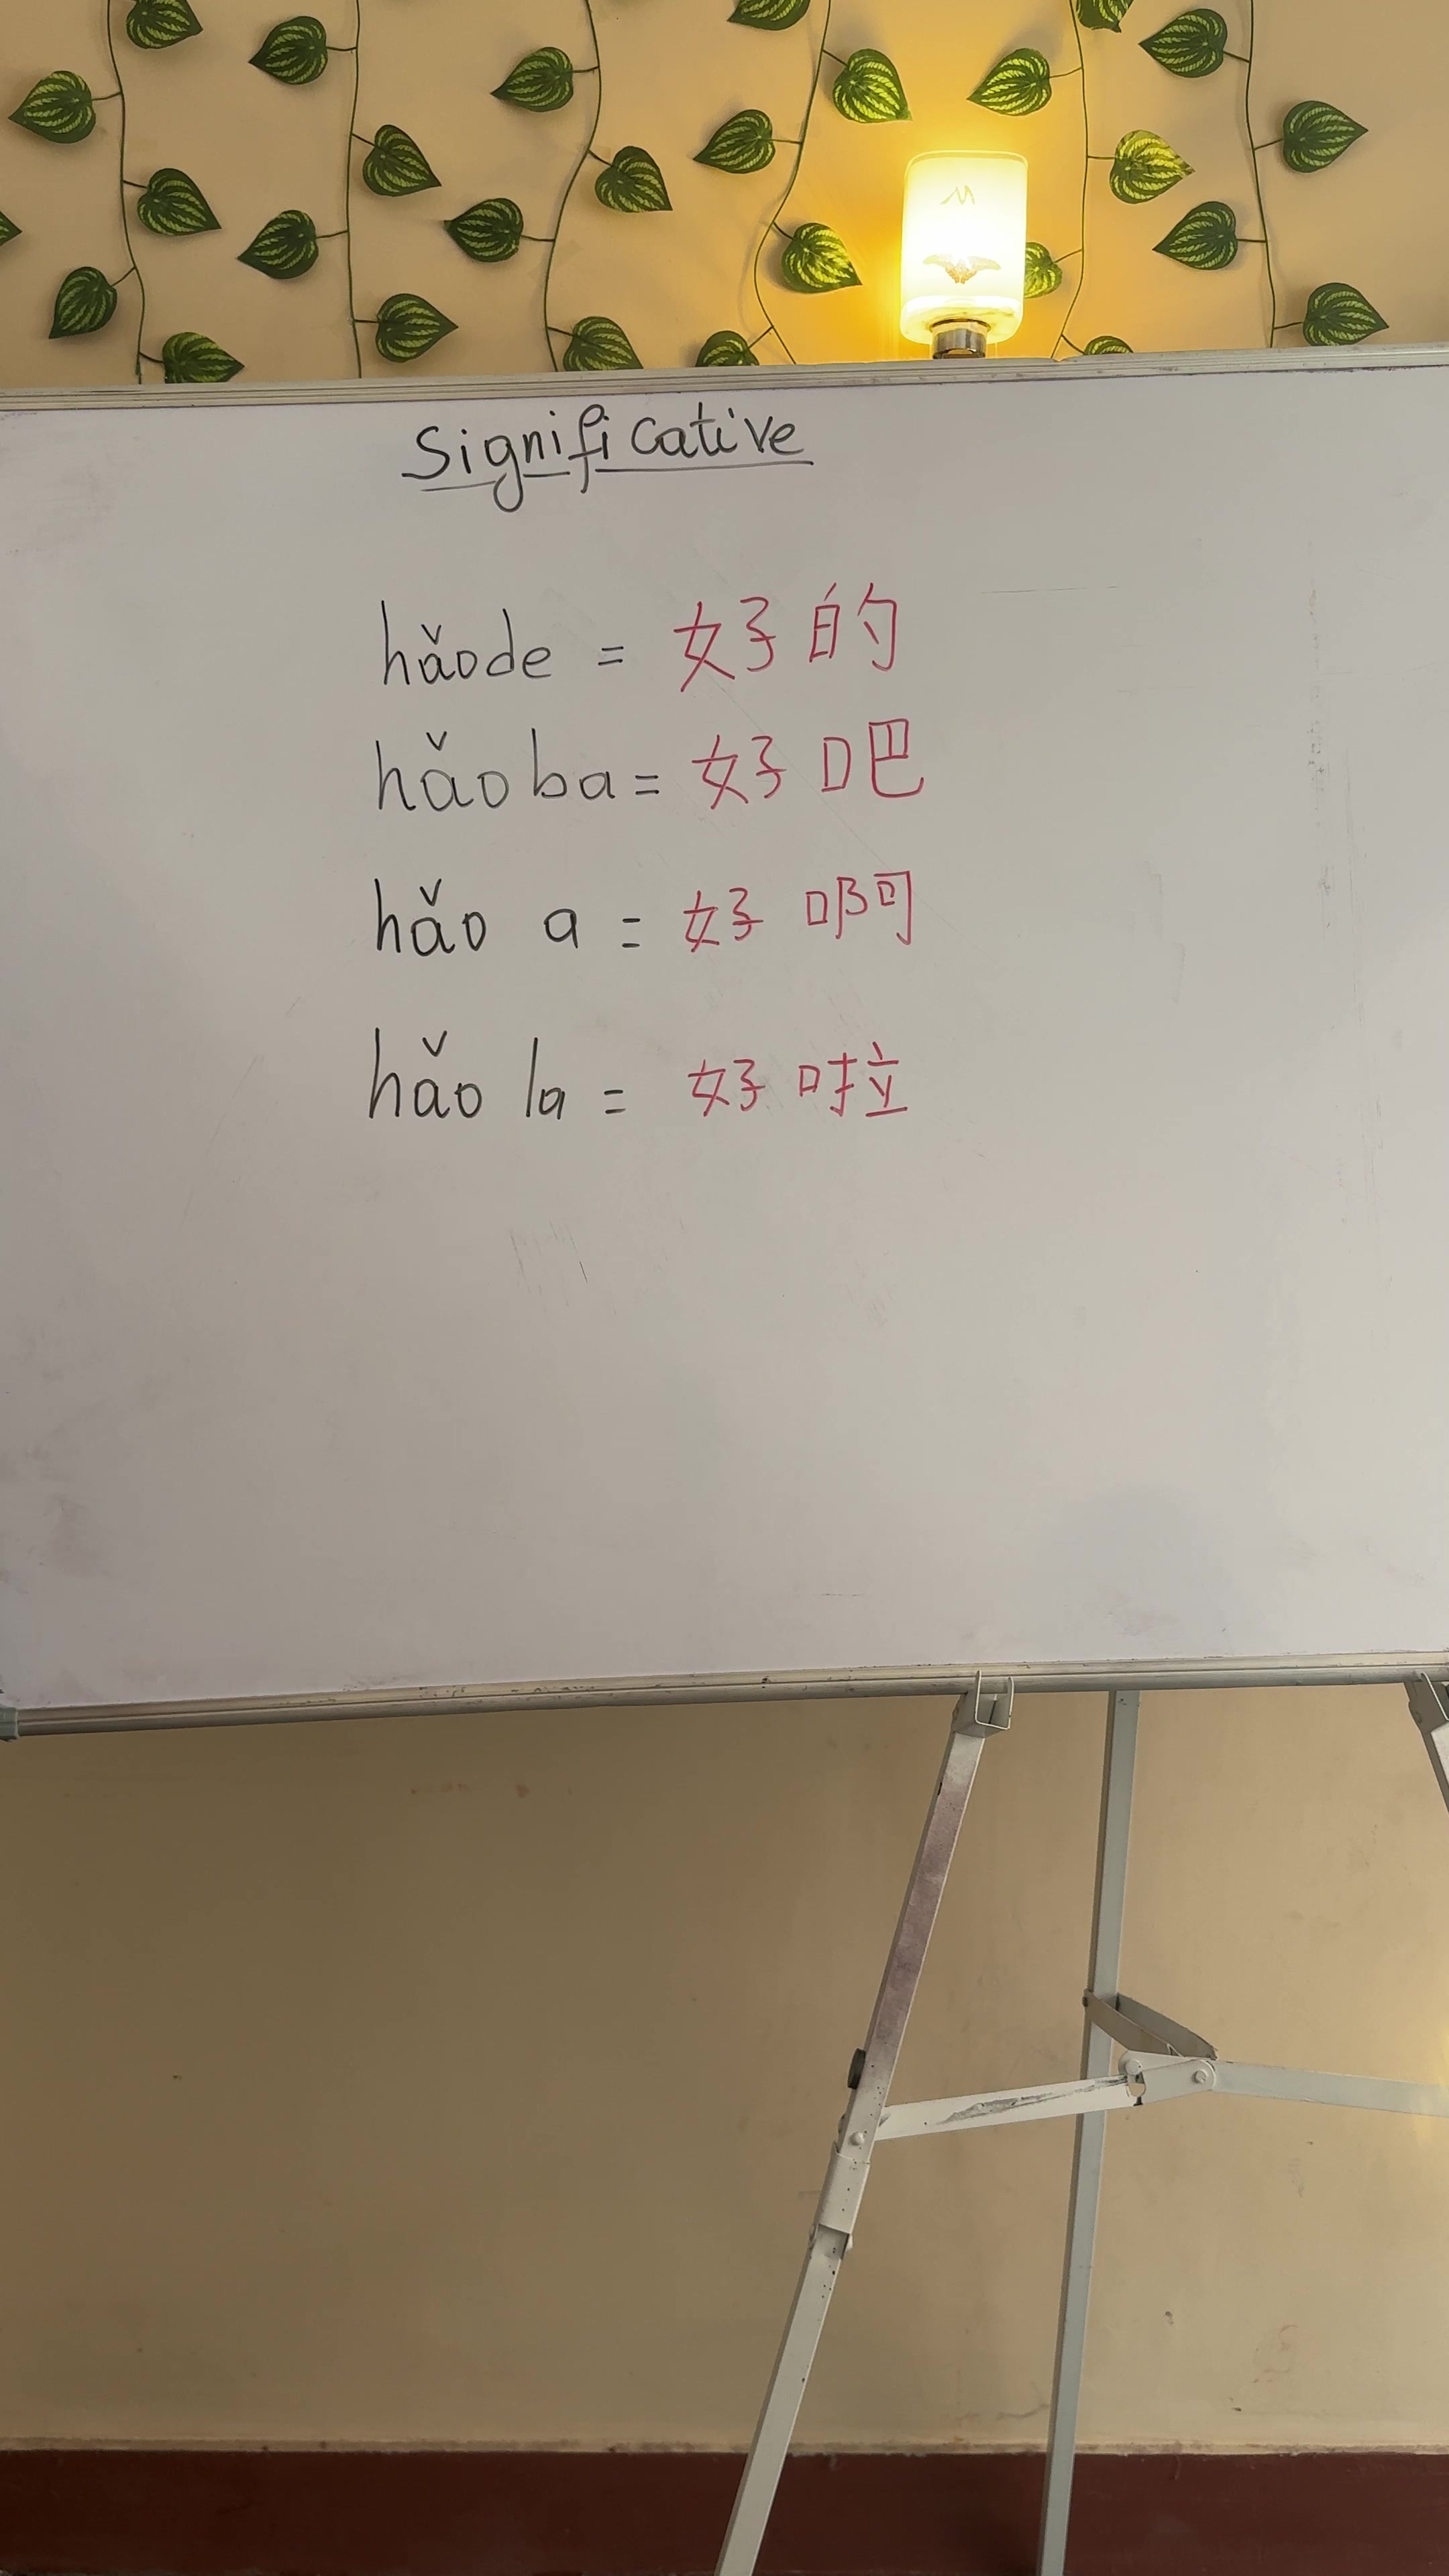 Significative
hǎode = 好的
hǎo ba = 好吧
hǎo a = 好啊
hǎo la = 好啦